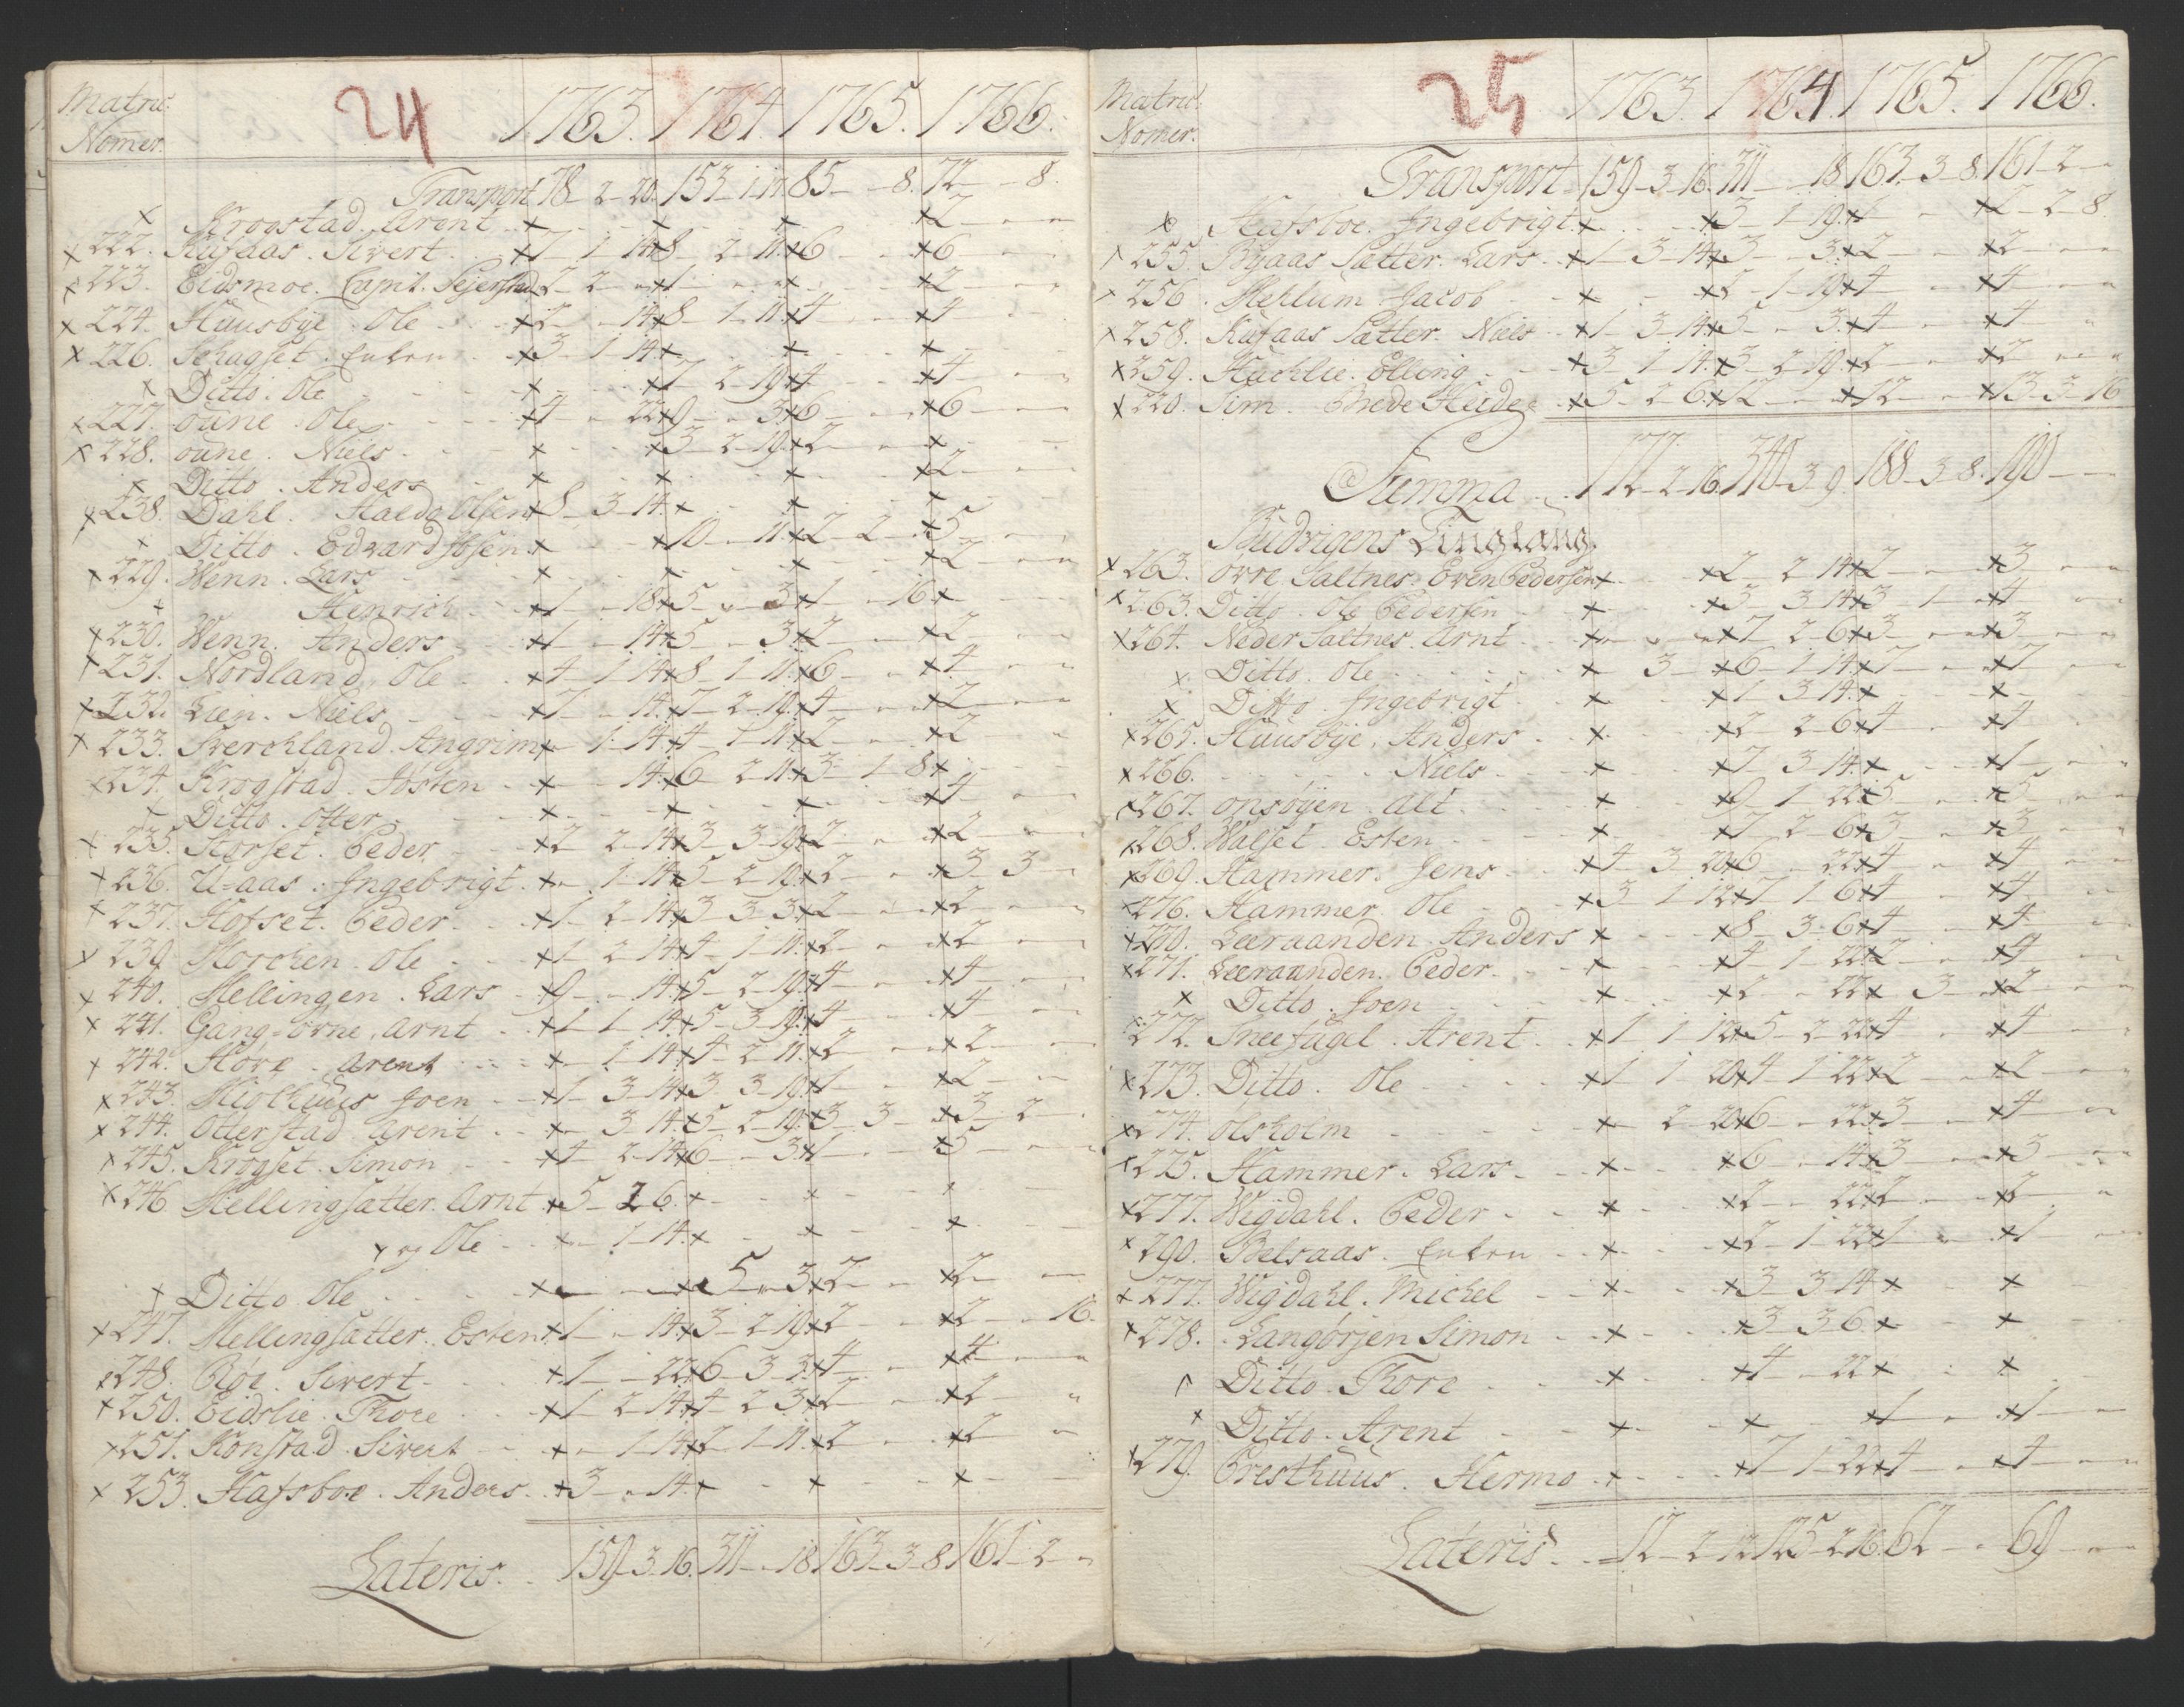 Matric: Nomer.
24
1763. 1764. 1765. 1766.
Transport 78-2-20. 153-1-17. 85- -8. 72- -8.
x Krogstad. Arent x x x x2
x 222. Rufaas. Sivert. x7 1 14 x8 2 11. x6 x6
x 223. Eidsmoe. Capit. 2 2 x1 x x2
x 224. Huusbÿe Ole x2 14 x8 1 11. x4 x4
x 226. Schagset. Enken x3 1 14 x x x
x Ditto. Ole x x7 2 19 x4 x4
x 227. oune. Ole x4 22 x9 3 x6 x6
x 228. oune. Niels x x3 2 19 x2 x
x Ditto. Anders x x x x2
x 238. Dahl. Olsen x8 3 14. x x x
x Ditto. Edvard Ibsen x x10 11 x2 2 x5
x 229. Wenn. Lars x x x x2
x Henrich x1 18 x5 3 x1 16 x
x 230. Wenn. Anders x1 14 x5 3 x2 x2
x 231. Nordland, Ole x4 1 14 x8 1 11. x6 x4
x 232. Lien. Niels x7 14. x7 2 19. x4 x2
x 233. Sverchland. Angrim x 1 14 x4 1 11 x2 x2
x 234. Krogstad. Iösten x 14. x6 2 11. x3 1 8 x
x Ditto. Otter x x x x4
x 235. Korset. Peder x2 2 14 x3 3 19 x2 x2
x 236. U-aas. Ingebrigt. x 1 14 x5 2 19 x2 x3 3
x 237. Hofset. Peder x1 2 14 x3 3 3. x2 x2
x 239. Horchen. Ole x1 2 14 x4 1 11. x2 x2
x 240. Mellingen. Lars x9 14 x5 2 19. x4 x4
x 241. Gang-orne, Arnt x1 1 14 x5 3 19. x4 x4
x 242. Hore. Arent x 1 14 x4 2 11. x2 x2
x 243. Migthuus Joen x1 3 14 x3 3 19. x1 x2
x 244. Otterstad. Arent x 3 14. x5 2 19. x3 3 x3 2
x 245. Krogset. Simon x4 2 14 x6 3 x1 x5
x 246. Mellingsatter. Arnt x5 2 6. x x x
x og Ole x 1 14. x x x
x Ditto Ole x x5 3 x2 x2
x 247. Mellingsatter. Esten x1 14 x3 2 19 x2 x2 16.
x 248. Röe. Sivert x1 22 x6 3 3. x4 x4
x 250. Eidslie. Thore x1 2 14 x4 2 3 x2 x2
x 251. Konstad. Sivert x 1 14 x2 1 11. x2 x2
x 253. Hafsboe. Anders x3 14. x x x
Lateris. 159-3-16. 311- -18 163-3-8 161-2-
Matric. Nomer.
25
1763. 1764. 1765. 1766.
Transport 159-3-16. 311- -18. 163-3-8. 161-2-
x Hafsboe. Ingebrigt x x3 1 19. x1 x2-2-8.
x 255. Byaas Sætter. Lars x1 3 14 x3 3. x2 x2
x 256. Mehlum Jacob x x5 1 19 x4 x4
x 258. Rufaas Sætter. Niels x1 3 14 x5 3. x4 x4
x 259. Elling x3 1 14. x3 2 19. x2 x2
x 220. Sim. x5 2 6. x12 x12 x13-3-16
Summa 172-2-16. 340-3-9. 188-3-8. 190-
Budvigens Tinglaug.
x 263. ovre Saltnes. Even Pedersen x x2 2 14 x2 x3
x 263. Ditto. Ole Pedersen x x3 3 14 x3 1 x4
x 264. Neder Saltnes. Arnt x x7 2 6 x3 x3
x Ditto. Ole x 3 x6 1 14. x7 x7
x Ditto. Ingebrigt x x1 3 14. x x
x 265. Huusbÿe. Anders x x2 2 6 x4 x4
x 266. Niels x x7 3 14. x x1
x 267. onsöyen Alt. x x9 1 22 x5 x5
x 268. Walset. Esten x x7 2 6 x3 x3
x 269. Hammer. Jens x4 3 20 x6 22 x4 x4
x 276. Hammer. Ole x3 1 12 x7 1 6 x4 x4
x 270. Leeraanden. Anders x x8 3 6 x4 x4
x 271. Leeraanden. Peder x x4 1 22 x2 x4
x Ditto. Joen x x2 22 x 3 x2
x 272. Sneefugel. Arent x1 1 12 x5 2 22 x4 x4
x 273. Ditto. Ole x1 1 20 x4 1 22 x2 x2
x 274. ölsholm x 2 20 x6 22 x3 x4
x 275. Hammer. Lars x x6 14 x3 x3
x 277. Wigdahl. Peder x x2 22 x2 x2
x 290. Belsaas. Enken x x2 1 22 x1 x1
x 277. Wigdahl. Michel x x3 3 14 x x
x 278. Langörjen Simon x x3 3 6 x x
Ditto. Thore x x4 22 x x
x Ditto. Arent x x x1 x1
x 279. Presthuus. Hermo x x7 1 22 x4 x4
Lateris. 12-2-12 125-2-16. 62- 69-